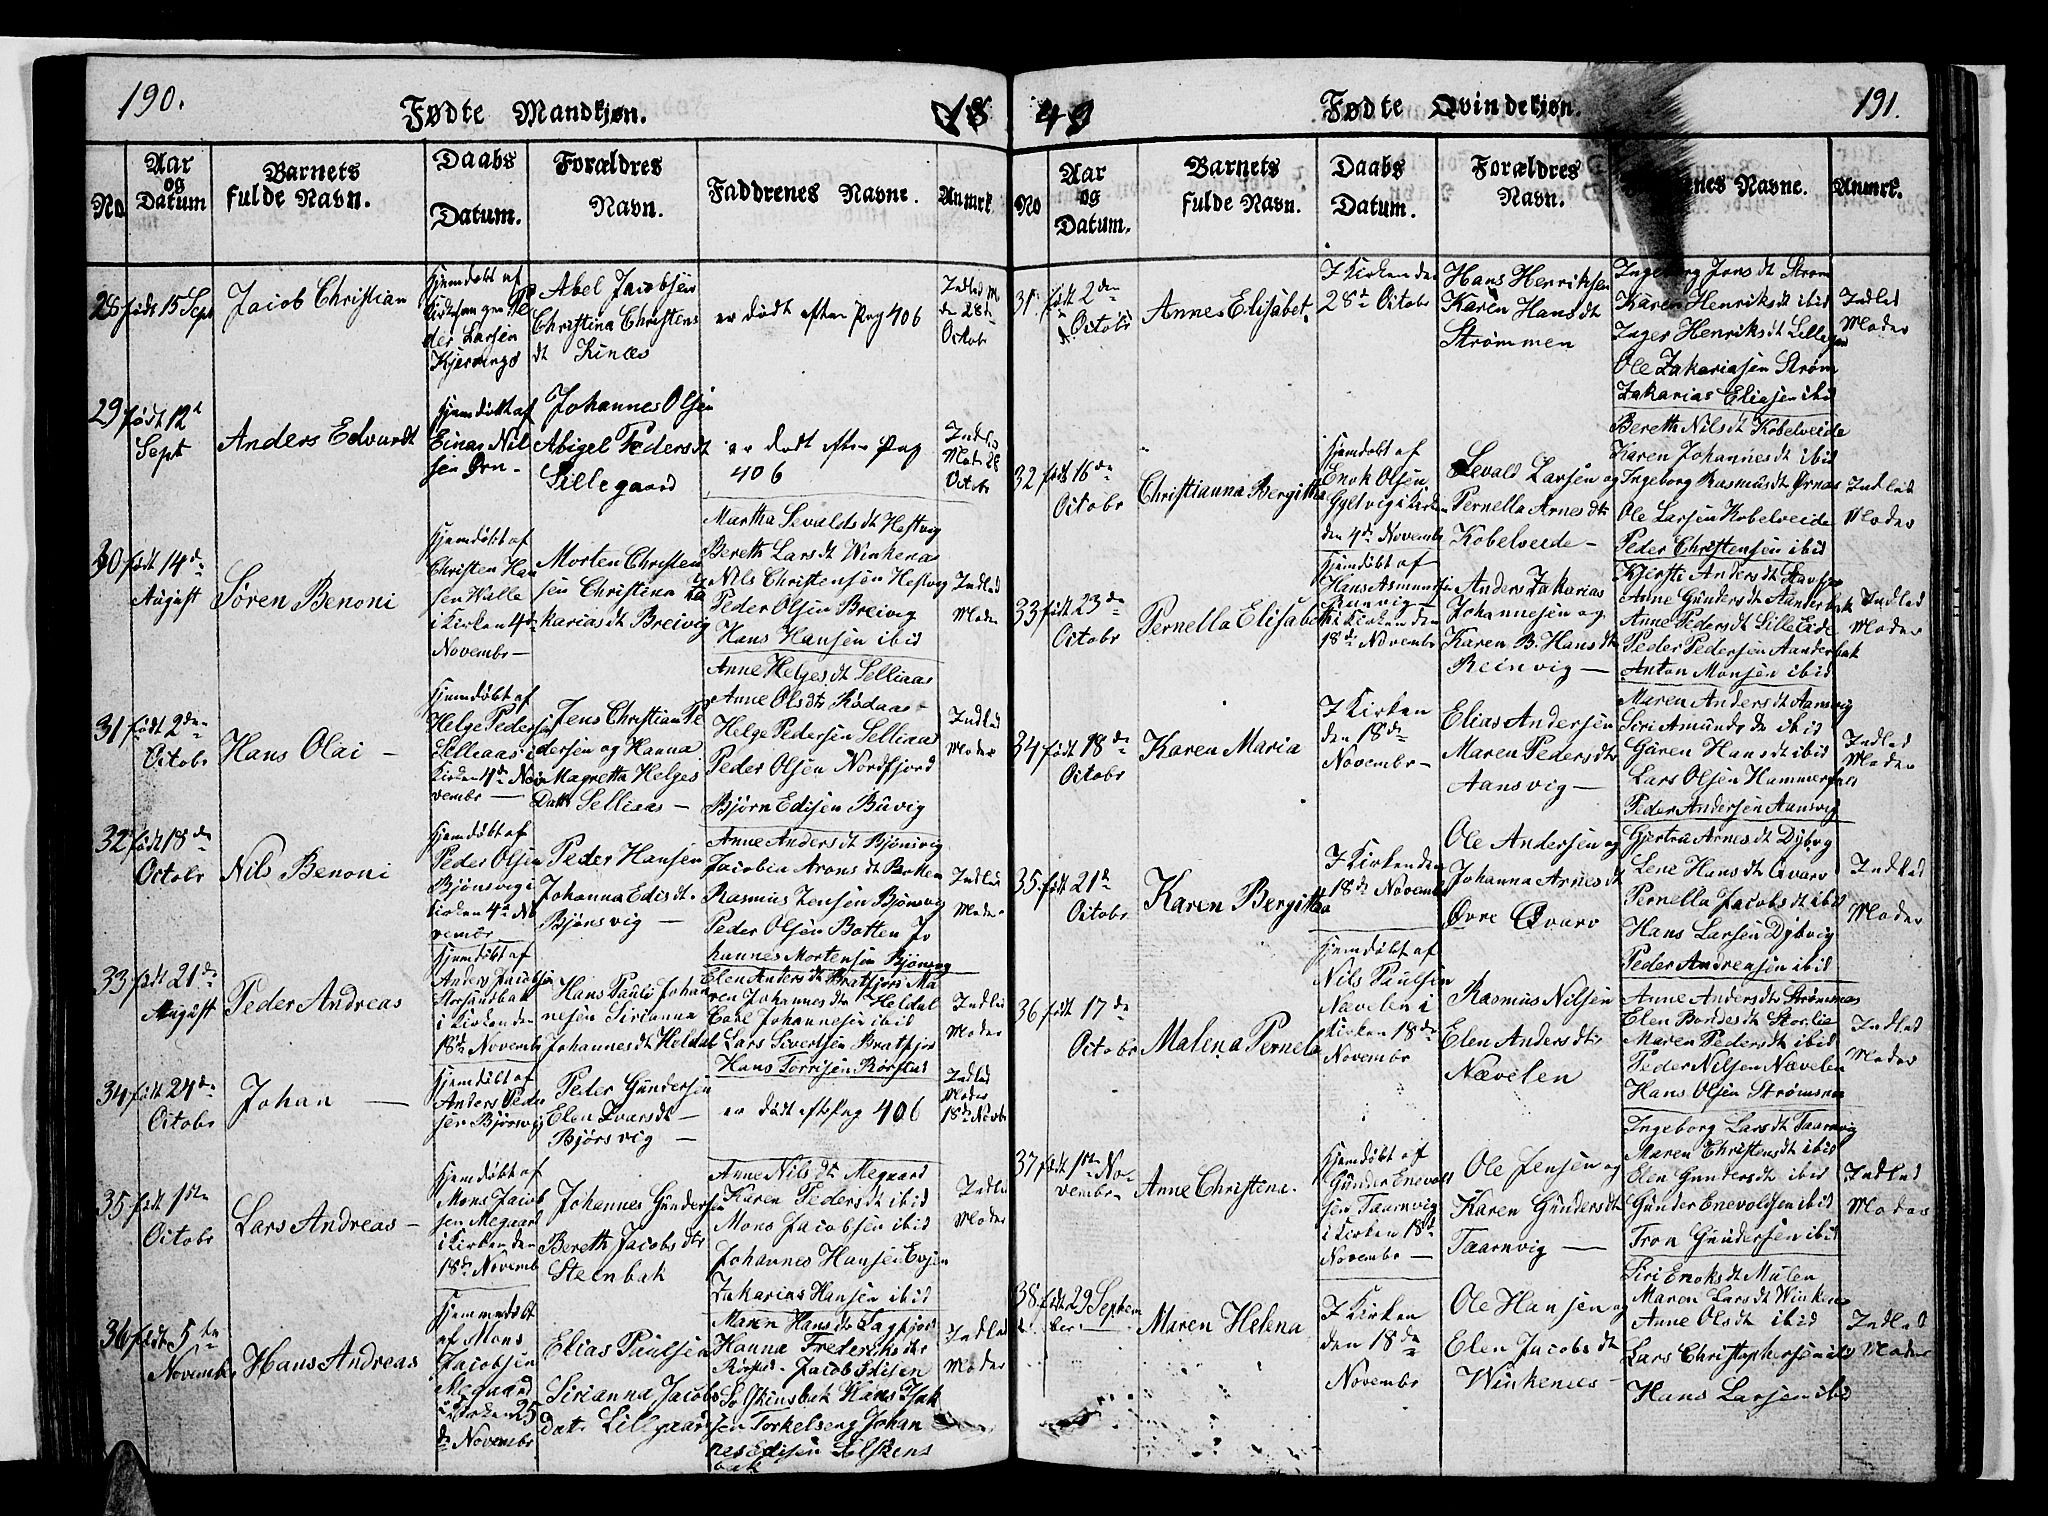 190.
Fødte Mandkjøn.
18
No
Aar
og
Datum
Barnets
fulde Navn.
Daabs
Datum.
Forældres
Navn.
Faddrenes Navne.
Anmrk.
28
født 15 Sept
Jacob Christian
Hjemdøbt af
der Larsen
Kjerrings
Abel Jacobsen
Christina Christens
dt Rinæs
er død efter Pag 406
Indled M
den 28de
Octobr
29
født 12te
Sept
Anders Edvardt
Hjemdøbt af
Einar Nil
sen Ørn-
Johannes Olsen
Abigel Pedersdt
Lillegaard
er død efter Pag
406
Indled
Mode 28
Octobr
30
født 14de
August
Søren Benoni
Hjemdøbt af
Christen Han
sen Walle
i Kirken 4de
Novembr-
Morten Christen
sen Christina Za
kariasdt Breivig
Martha Sevaldsdt Hestvig
Bereth Larsdt Winkenæs
Nils Christensen Hestvig
Peder Olsen Breivig
Hans Hansen ibid
Indled
Moder
31
født 2den
Octobr
Hans Olai -
Hjemdøbt af
Helge Pedersen
Selliaas i
Kirken 4de No
vembr -
Jens Christian Pe
dersen og Hanna
Magretha Helges
Datt Selliaas -
Anne Helgesdt Selliaas
Anne Olsdtr Rødaas
Helge Pedersen Selliaas
Peder Olsen Nordfjord
Bjørn Edisen Buvig
Indled
Moder
32
født 18de
Octobr
Nils Benoni
Hjemdøbt af
Peder Olsen
Bjønsvig i
Kirken 4de No
vembr
Peder Hansen
Johanna Edisdt
Bjønsvig -
Anne Andersdt Bjønsvig
Jacobia Aronsdt Barken
Rasmus Jensen Bjønsvig
Peder Olsen Botten Jo
hannes Mortensen Bjønsvig
Indled
Moder
33
født 21de
August
Peder Andreas
Hjemdøbt af
Anders Jacobsen
Storsandbak
i Kirken den
18de Novembr
Hans Pauli Johan
nesen Sirianna
Johannesdt Heldal
Elen Andersdt Bratfjord Ma
ren Johannesdtr Heldal
Carl Johannesen ibid
Lars Sivertsen Bratfjord
Hans Torrisen Rørstad
Indled
Moder
34
født 24de
Octobr
Johan -
Hjemdøbt af
Anders Peder
sen Bjørsvig
Peder Gundersen
Elen Ivarsdt -
Bjørsvig -
er død eft Pag 406
Indled
Moder
18de Novbr
35
født 1ste
Octobr
Lars Andreas -
Hjemdøbt af
Mons Jacob
sen Megaard
i Kirken den
18de Novemb
Johannes Gundersen
Bereth Jacobsdtr
Steenbak
Anne Nilsdt Megaard
Karen Pedersdt ibid
Mons Jacobsen ibid
Johannes Hansen Evjen
Zakarias Hansen ibid
Indled
Moder
36
født 5te
November
Hans Andreas
Hjemmedøbt
af Mons
Jacobsen
Megaard
i Kirken 25
de Novembr
Elias Paulsen
Sirianna Jacobs
datr Lillegaard
Maren Hansdt Lagfjord
Hanna Frederiksdtr
Jacob Edisen
Solskinsbak Hans Isak
sen Torkelseng Johan
nes Edisen Solskens
bak
Indled
Moder
49
Fødte Qvindekjøn.
191.
No
Aar
og
Datum.
Barnets
fulde Navn.
Daabs
Datum.
Forældres
Navn.
nes Navne.
Anmrk.
31
født 2den
Octobr
Anne Elisabet.
I Kirken den
28de Octobr
Hans Henriksen
Karen Hansdt
Strømmen
Ingeborg Jonsdt Strøm
Karen Henriksdt ibid
Inger Henriksdt Lillegaard
Ole Zakariasen Strøm
Zakarias Eliasen ibid
Indled
Moder
32
født 16de
Octobr
Christianna Bergitha
Hjemdøbt af
Enok Olsen
Gyltvig i Kirken
den 4de Novembr
Sevald Larsen og
Pernella Arnesdtr
Kobelveide -
Bereth Nilsdt Kobelveide
Karen Johannesdt ibid
Ingeborg Rasmusdt Ørnæs
Ole Larsen Kobelveide
Peder Christensen ibid
Indled
Moder
33
født 23de
Octobr
Pernella Elisabeth
Hjemdøbt af
Hans Asmundsen
i Kirken den
18de Novembr
Anders Zakarias
Johannesen og
Karen B. Hansdt
Reinvig -
Kjersti Andersdt
Anne Gundersdt Aanderbak
Anne Pedersdt Lilleeide
Peder Pedersen Aanderbak
Anton Monsen ibid
Indled
Moder
34
født 18de
Octobr
Karen Maria
I Kirken
den 18de
Novembr -
Elias Andersen
Maren Pedersdtr
Aansvig -
Maren Andersdt Aansvig
Siri Amundsdt ibid
Guren Hansdt ibid
Lars Olsen Hammerfald
Peder Andersen Aansvig
Indled
Moder
35
født 21de
Octobr
Karen Bergitha
I Kirken den
18de Novemb
Ole Andersen og
Johanna Arnesdt
Øvre Qvarv
Gjertru Arnesdt Dybvig
Lene Hansdt Qvarv
Pernella Jacobsdt ibid
Hans Larsen Dybvig
Peder Andreasen ibid
Indled
Moder
36
født 17de
Octobr
Malena Pernela
Hjemdøbt af
Nils Paulsen
Nævelen i
Kirken 18de
Novembr
Rasmus Nilsen
Elen Andersdtr
Nævelen
Anne Andersdtr Strømsnes
Elen Bardesdt Storlie
Maren Pedersdt ibid
Peder Nilsen Nævelen
Hans Olsen Strømsnes
Indled
Moder
37
født 1ste No
vembr
Anne Christine.
Hjemdøbt af
Gunder Enevold
sen Taarnvig
i Kirken 18de
Novembr -
Ole Jensen og
Karen Gundersdt
Taarnvig -
Ingeborg Larsdt Taarnvig
Maren Christensdt ibid
Elen Gundersdt ibid
Gunder Enevoldsen ibid
Tron Gundersen ibid
Indled
Moder
38
født 29 Septem
ber
Maren Helena
I Kirken
den 18de
Novembr
Ole Hansen og
Elen Jacobsdt
Winkenes -
Siri Enoksdt Mulen
Maren Larsdt Winkenes
Anne Olsdt ibid
Lars Christophersen ibid
Hans Larsen ibid
Indled
Moder